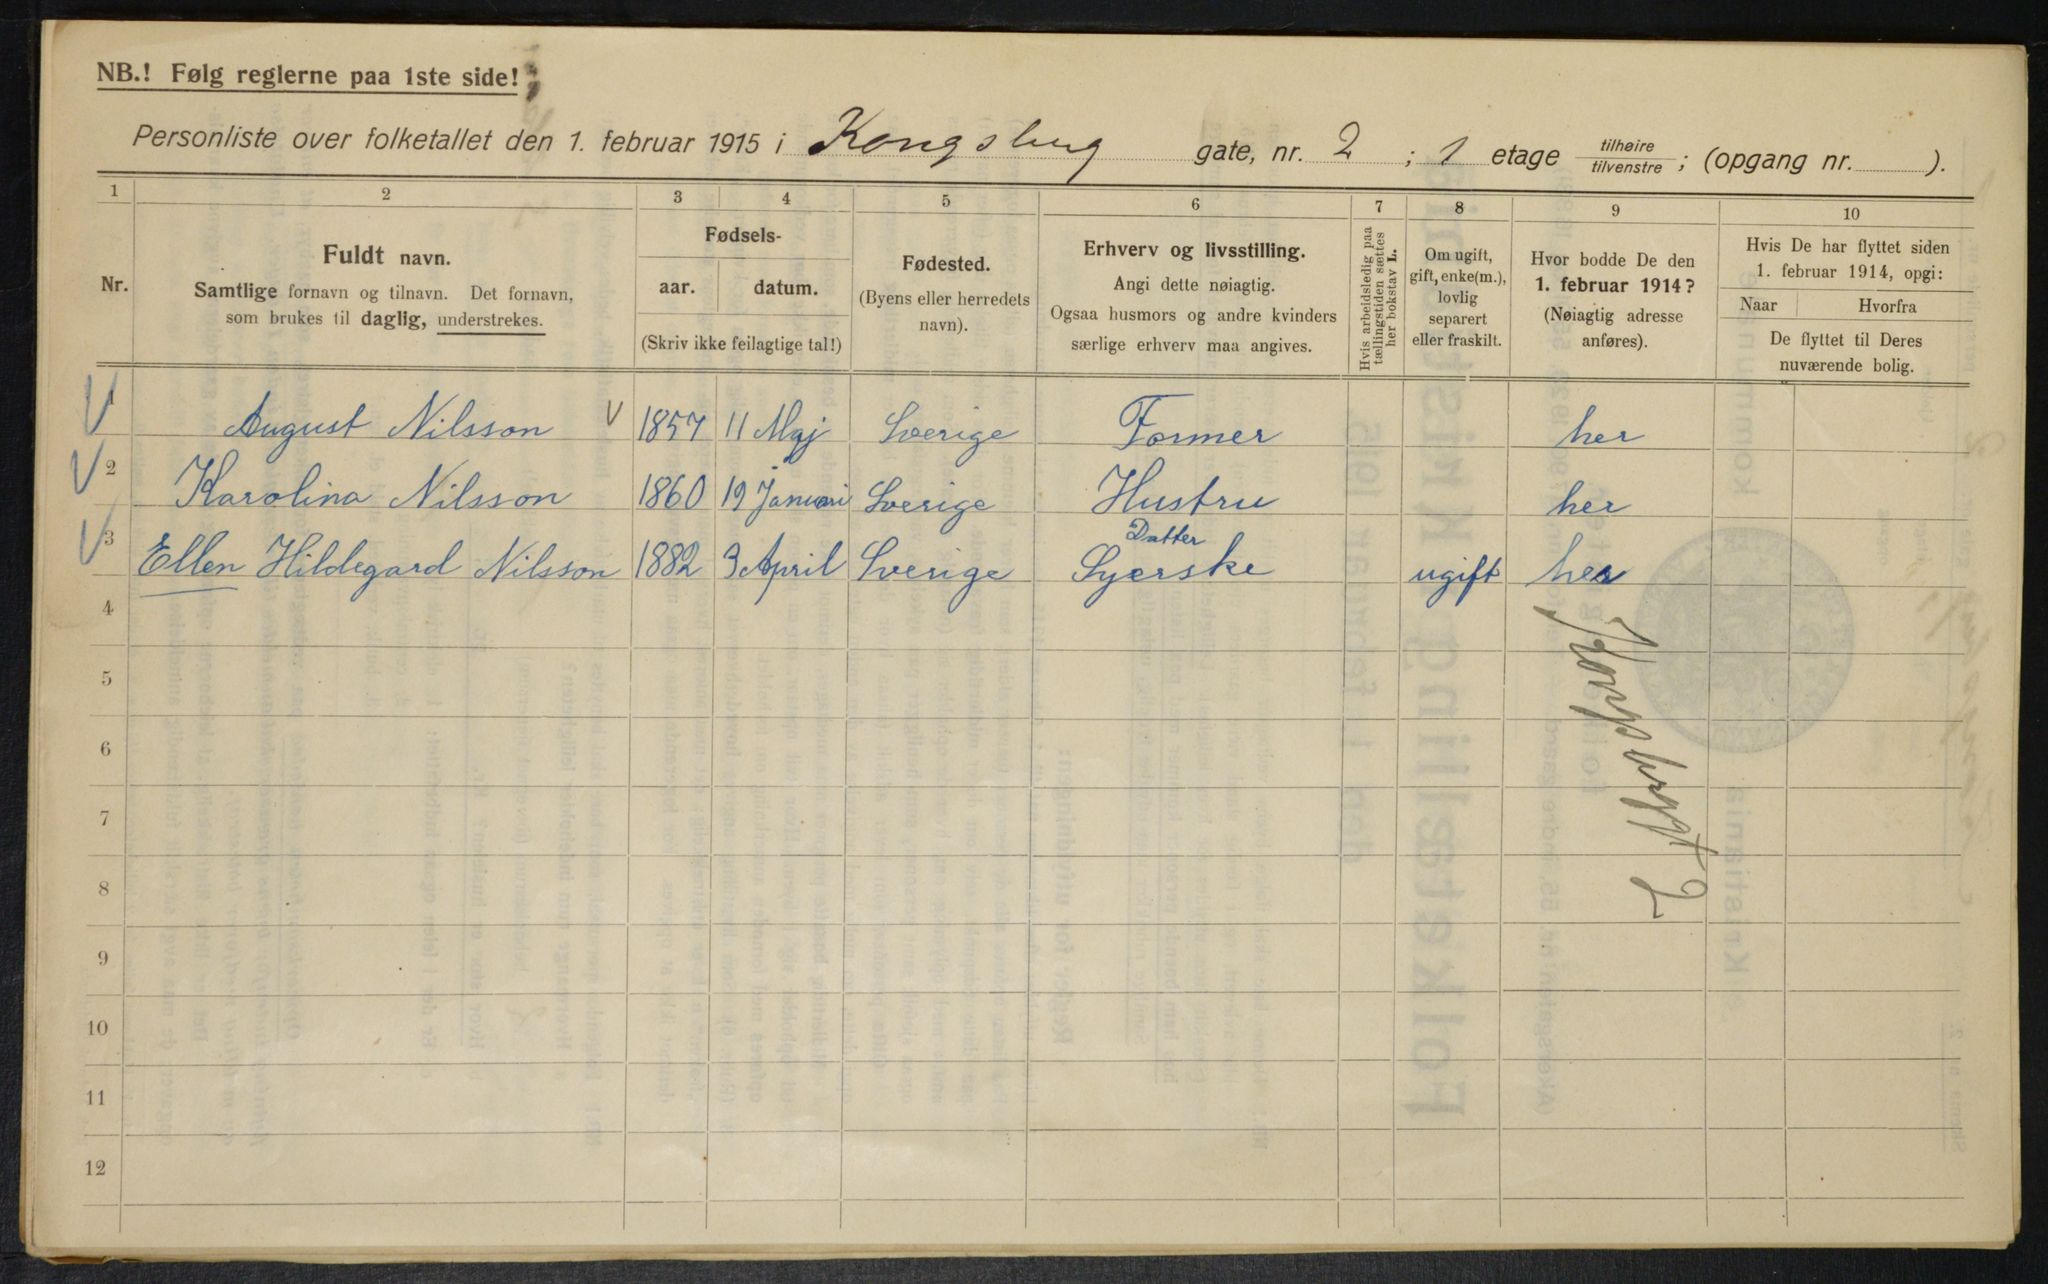 NB.! Følg reglerne paa 1ste side!
Personliste over folketallet den 1. februar 1915 i Kongsberg gate, nr. 2 ; 1 etage tilhøire tilvenstre ; (opgang nr. ).
1 2 3 4 5 6 7 8 9 10
Nr.
Fuldt navn.
Samtlige fornavn og tilnavn. Det fornavn,
som brukes til daglig, understrekes.
Fødsels-
aar. datum.
(Skriv ikke feilagtige tal!)
Fødested.
(Byens eller herredets
navn).
Erhverv og livsstilling.
Angi dette nøiagtig.
Ogsaa husmors og andre kvinders
særlige erhverv maa angives.
Hvis arbeidsledig paa
tællingstiden sættes
her bokstav L.
Om ugift,
gift, enke(m.),
lovlig
separert
eller fraskilt.
Hvor bodde De den
1. februar 1914?
(Nøiagtig adresse
anføres).
Hvis De har flyttet siden
1. februar 1914, opgi:
Naar Hvorfra
De flyttet til Deres
nuværende bolig.
1 August Nilsson 1857 11 Maj Sverige Former her
2 Karolina Nilsson 1860 19 Januari Sverige Hustru her
Datter
3 Ellen Hildegard Nilsson 1882 3 April Sverige Syerske ugift her
4
5
6
7
8
9
10
11
12
2